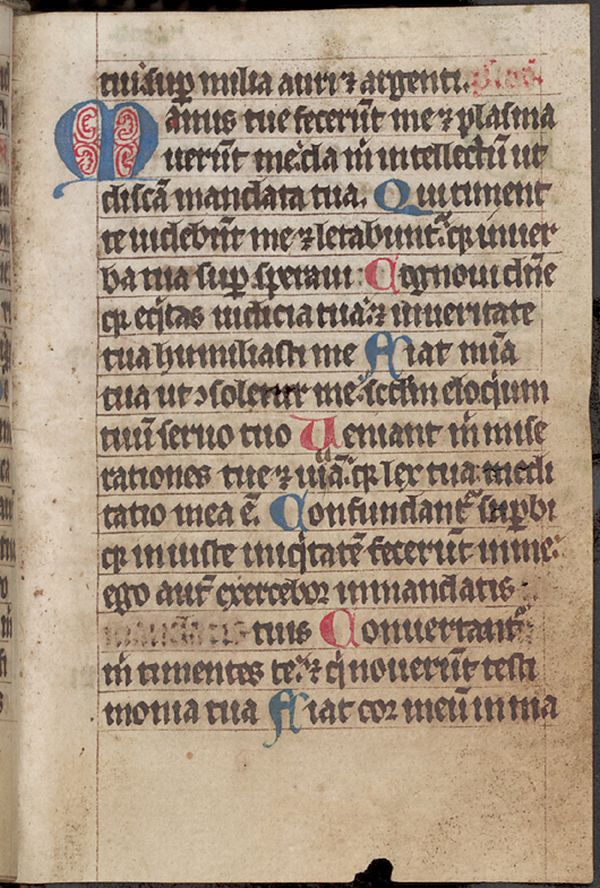 tui. sup̱ milia auri ⁊ argenti.
Manus tue fecerūt me ⁊ plasma
uerūt me: da m̄ intellectū ut
discā mandata tua. Qui timent
te uidebūt me ⁊ letabunt᷑: qꝛ in uer
ba tua sup̱ speraui Cognoui dn̄e
qꝛ eq̇tas iudicia tua: ⁊ in ueritate
tua humiliasti me Fiat mīa
tua ut ꝯsoletur me: scdm eloq̇um
tuū seruo tuo Ueniant m̄ mise
rationes tue ⁊ uiuā: qꝛ lex tua medi
tatio mea ē. Confundant᷑ sup̱bi
qꝛ iniuste iniq̇tatē fecerūt in me:
ego aut̄ exercebor in mandatis
mandatis tuis Conuertant᷑
m̄ timentes te: ⁊ q̇ nouerūt testi
monia tua Fiat cor meū in ma